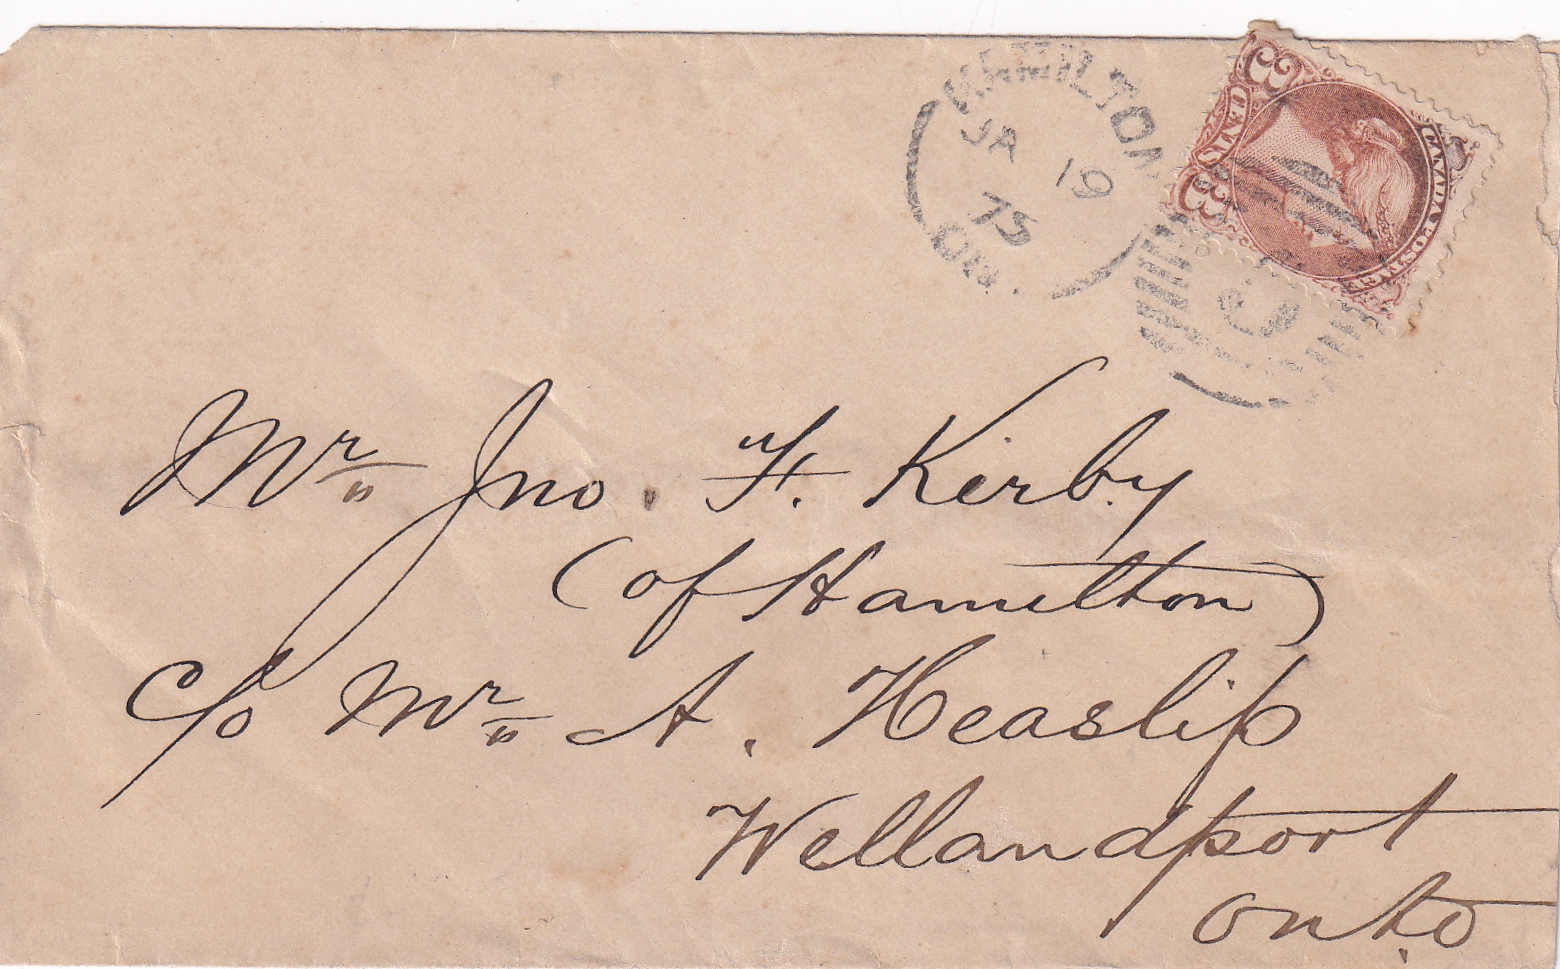 HAMILTON
JA 19
75
ONT.
CANADA POSTAGE
3 CENTS 3
Mr Jno. F. Kirby
(of Hamilton)
c/o Mr A. Heaslip
Wellandport
Onto